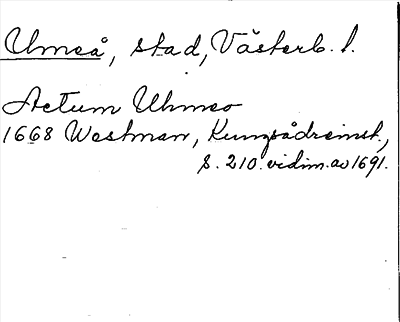 Umeå, stad, Västerb. l.
Actum Uhmeo
1668 Westman, Kungsådreinst.,
s. 210. vidim. av 1691.